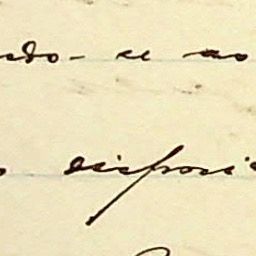 ndo-se ao
o disposi